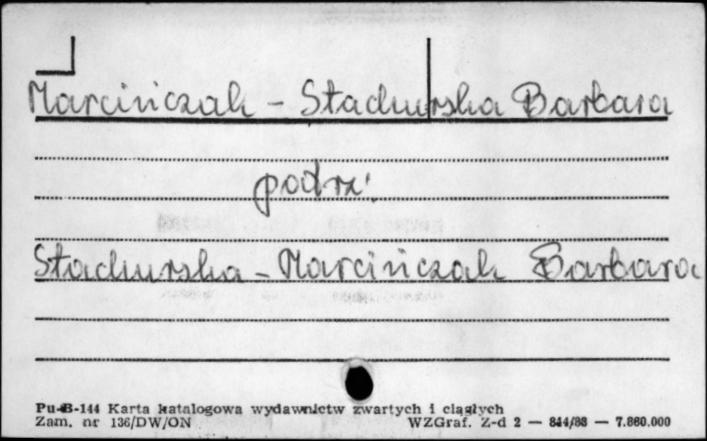 Marcińczak - Stachurska Barbara
podrz.
Stachurska - Marcińczak Barbara
Pu-B-144 Karta katalogowa wydawnictw zwartych i ciągłych
Zam. nr 136/DW/ON WZGraf. Z-d 2 — 844/88 — 7.860.000